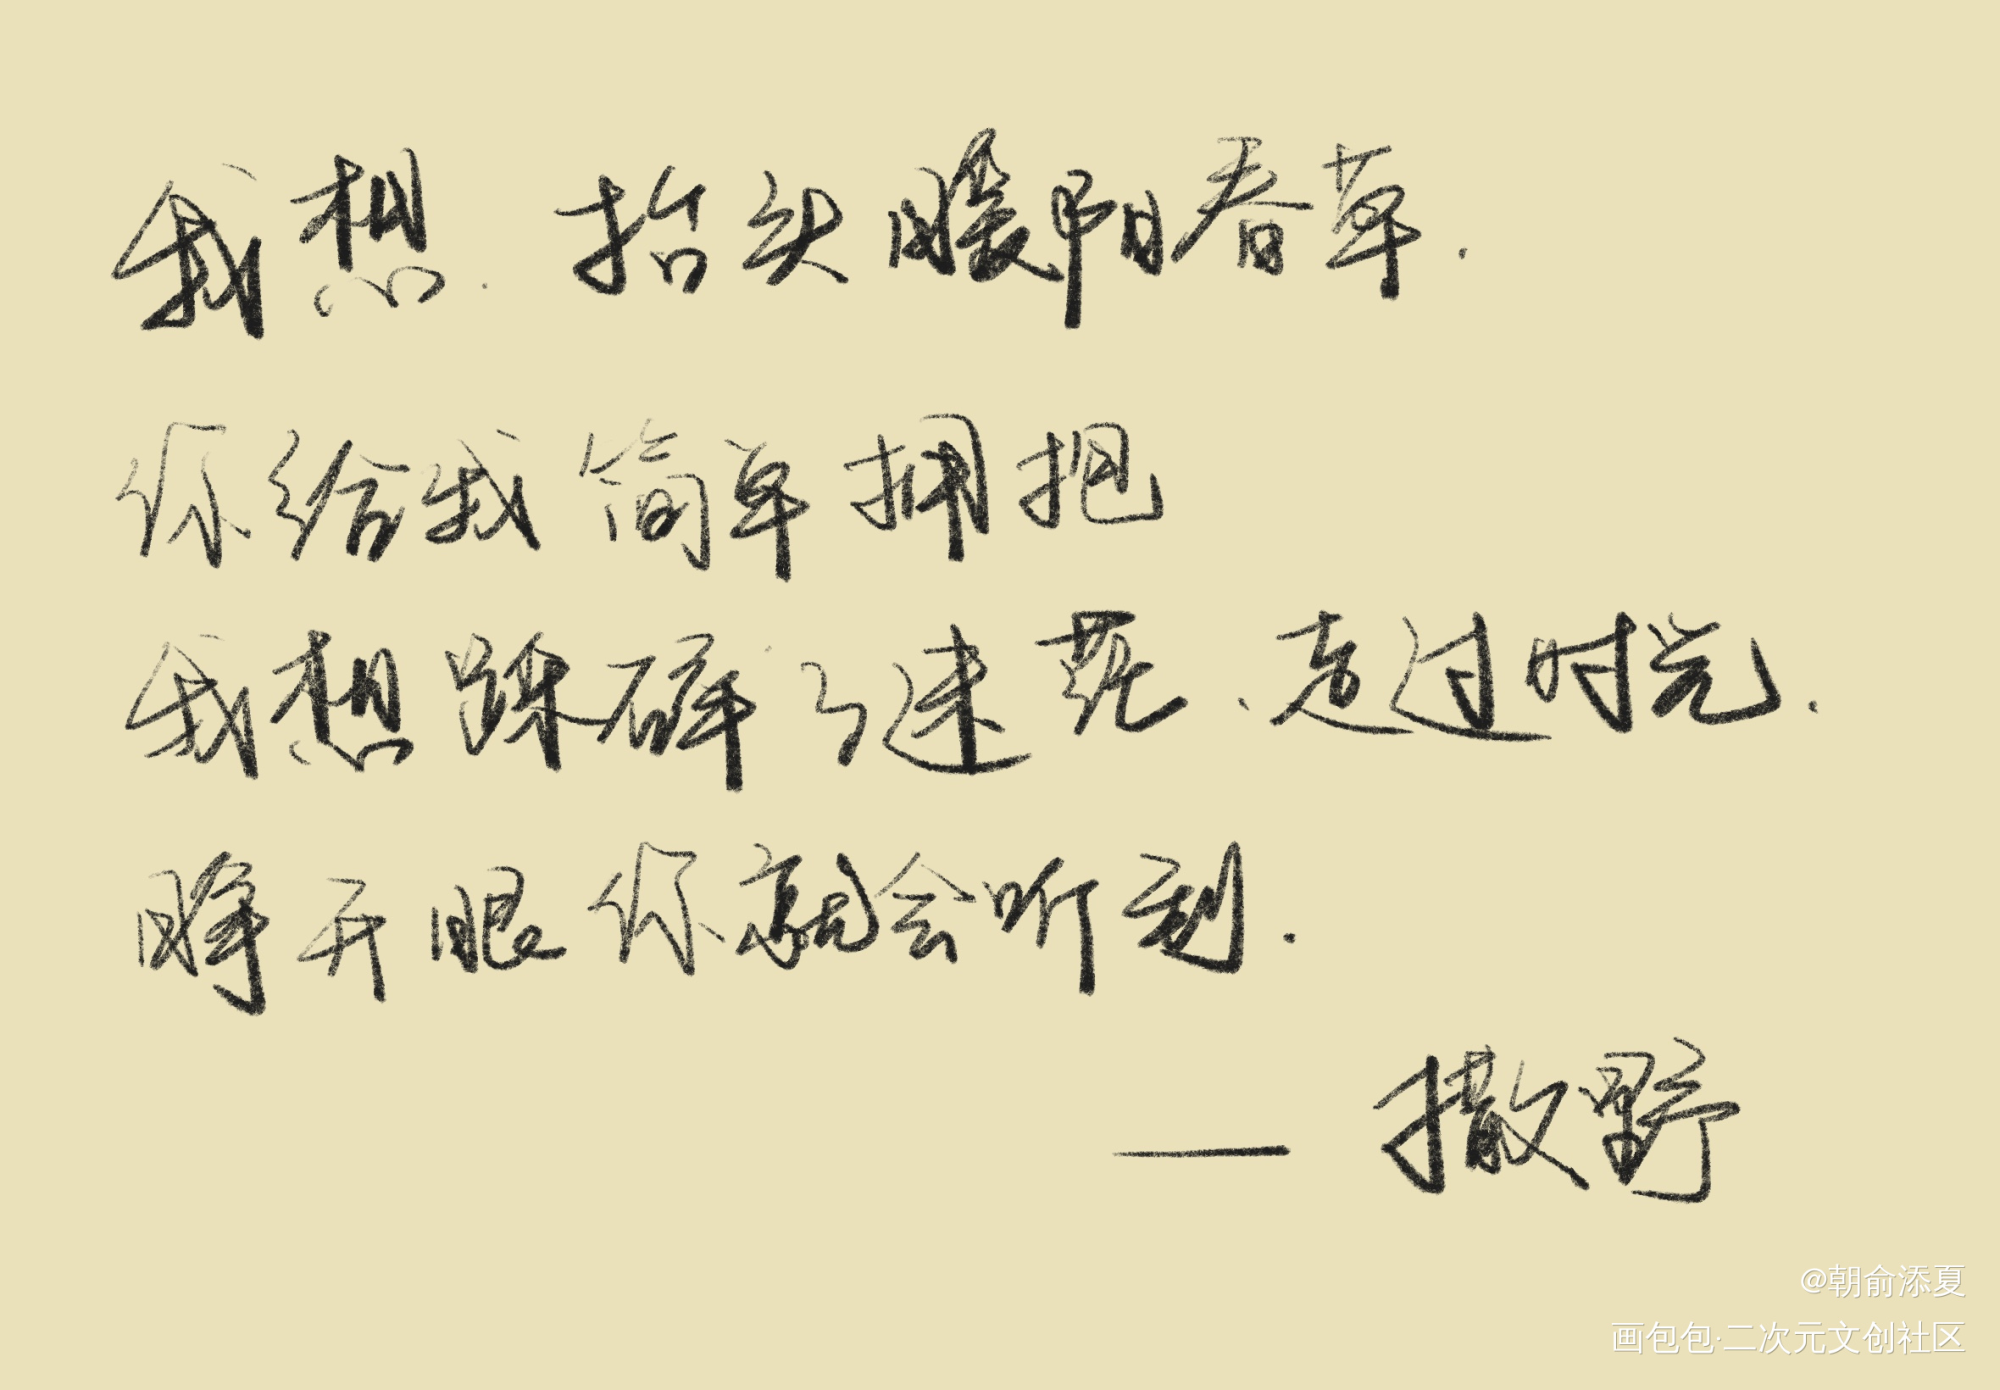 我想.抬头暖阳春草.
你给我简单拥抱
我想踩碎了迷茫.走过时光.
睁开眼你就会听到.
—— 撒野
@朝俞添夏
画包包·二次元文创社区